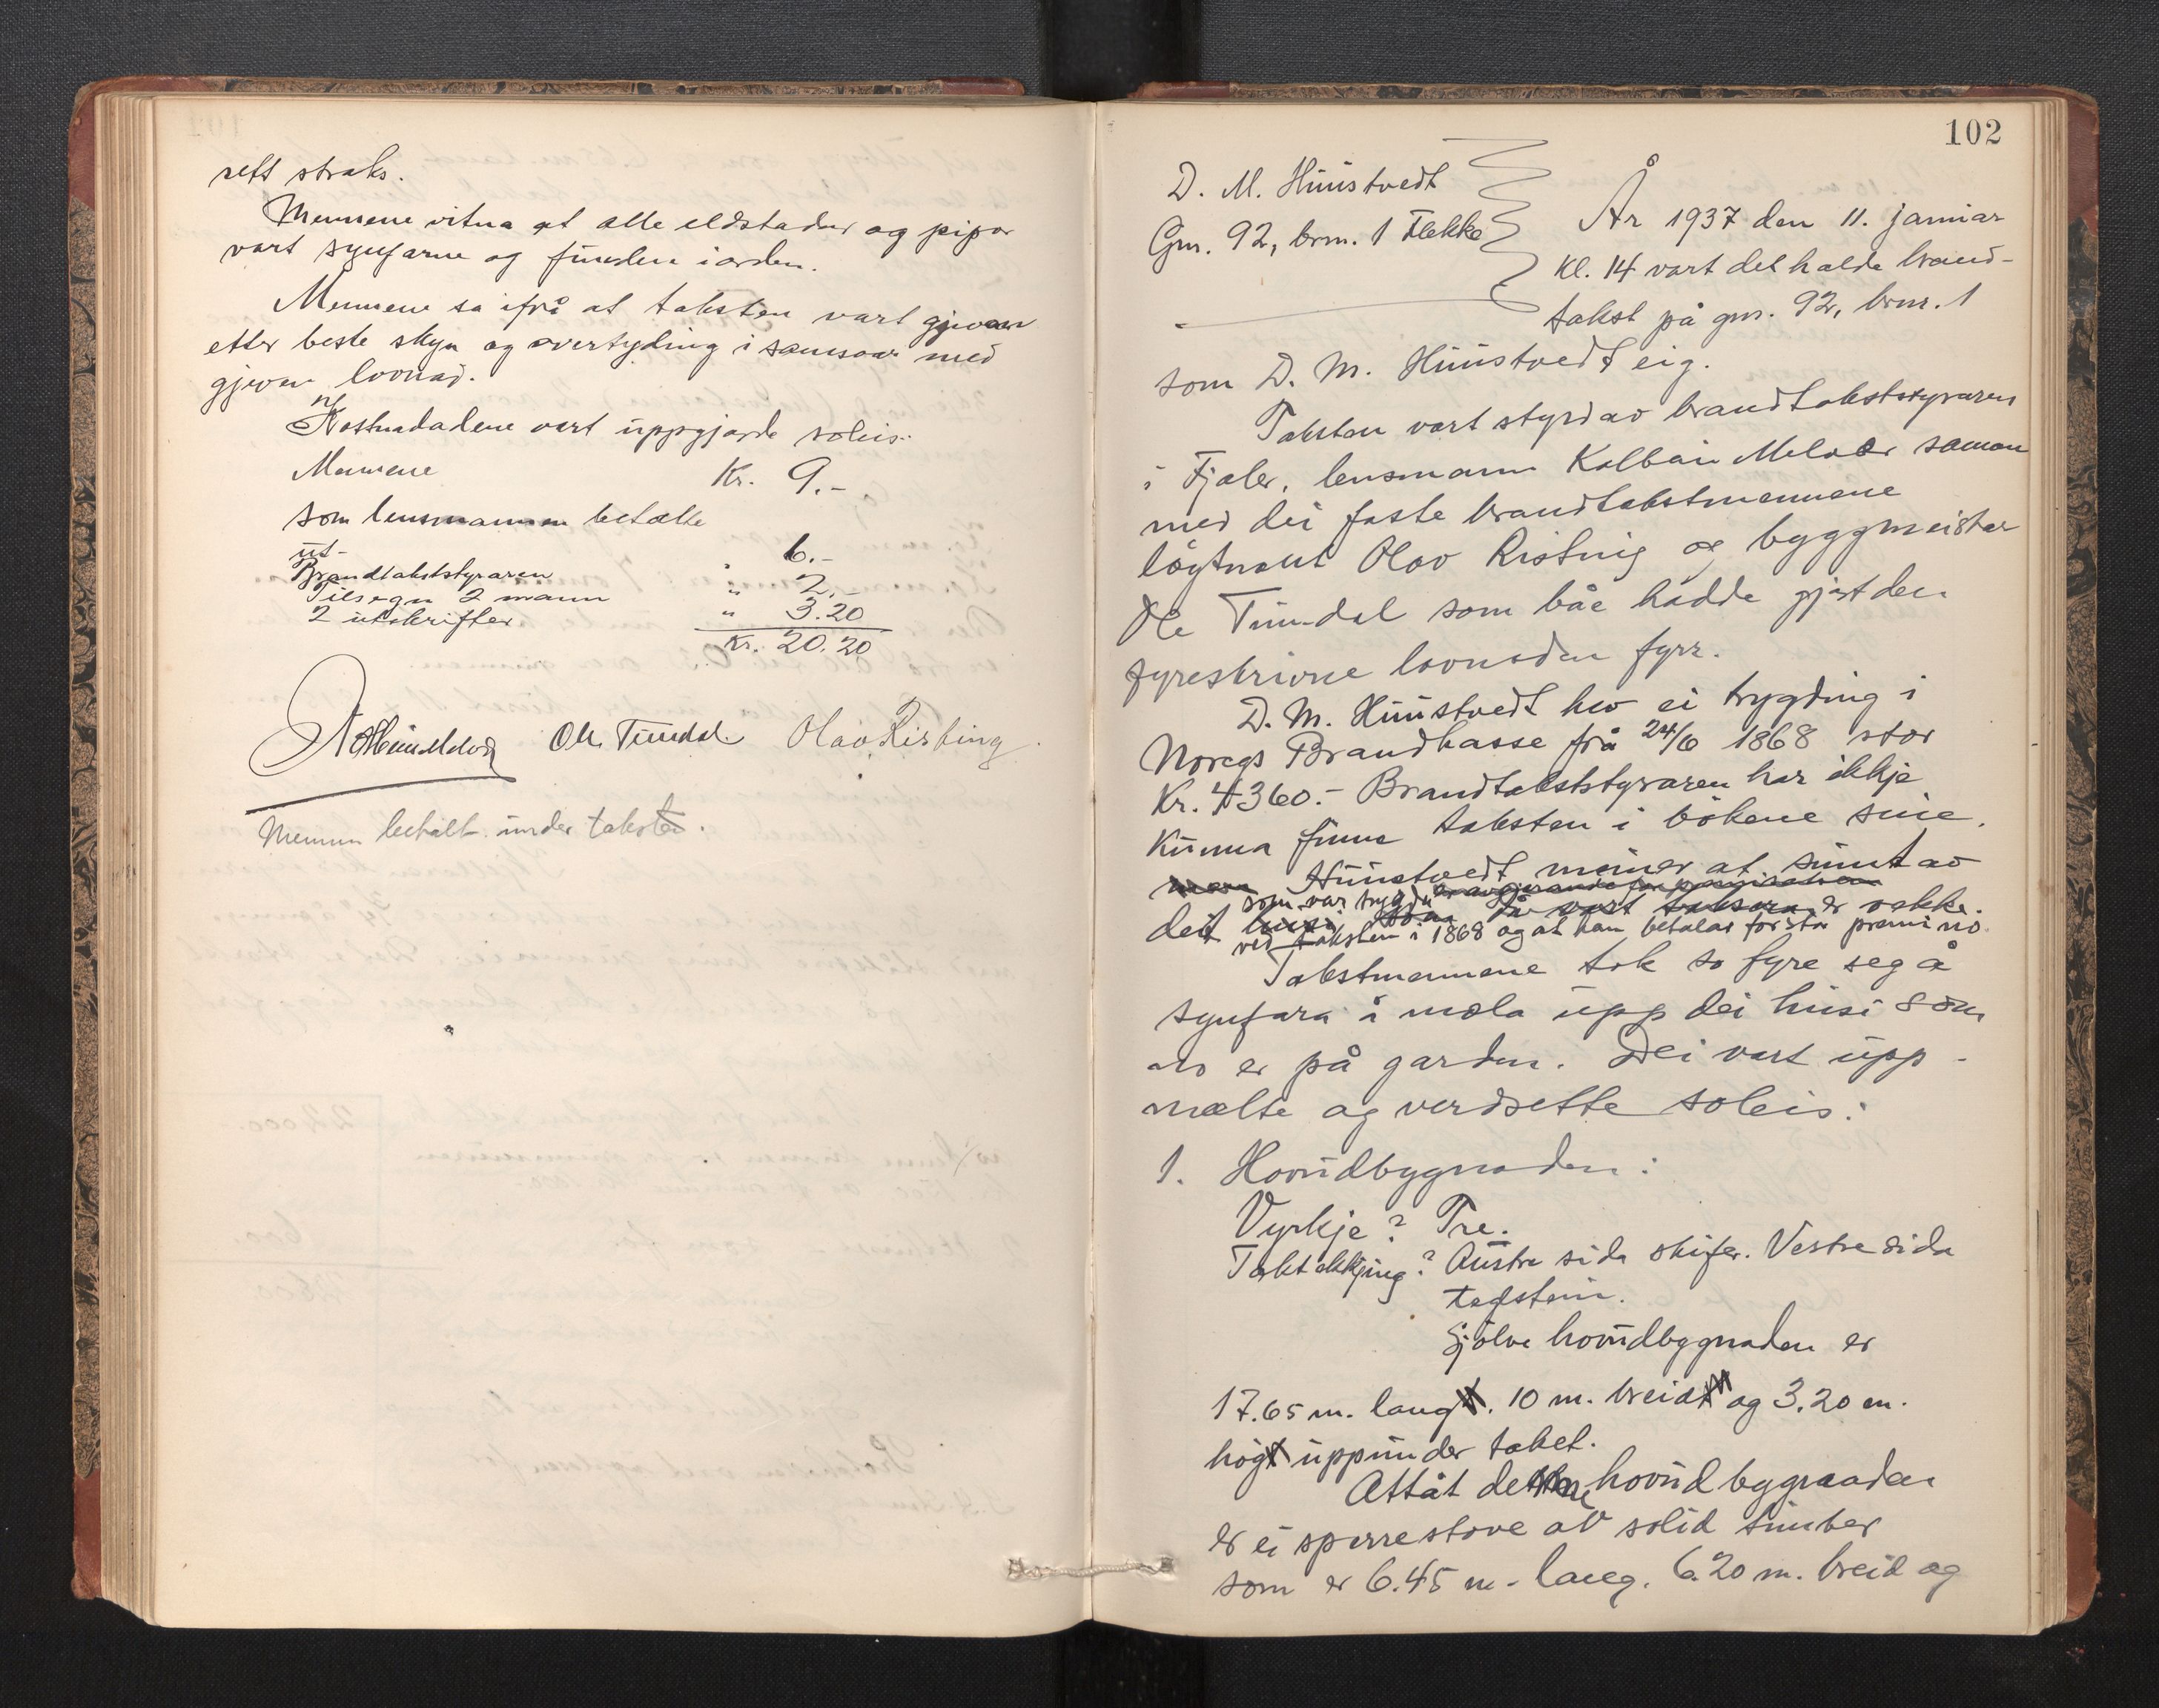 rett straks.
Mennene vitna at alle eldstader og pipor
vart synfarne og fundne iorden.
Mennene sa ifrå at taksten vart gjeven
etter beste skyn og overtyding i samsvar med
gjeven lovnad.
Kostnadadene vart uppgjorde soleis:
Mennene Kr. 9.-
som lensmannen betalte
ut-
Brandtakststyraren " 6.-
Tilsegn 2 mann " 2.-
2 utskrifter " 3.20
Kr. 20.20
Ole Tundal Olav Risting
Mennene betalt under taksten.
102
D. M. Huustvedt
Gnr. 92, brnr. 1 Flekke
År 1937 den 11. januar
kl. 14 vart det halde brand-
takst på gnr. 92, brnr. 1
som D. M. Huustvedt eig.
Taksten vart styrd av brandtakststyraren
i Fjaler, lensmann Kolbein Melvær saman
med dei faste brandtakstmennene
løgtnant Olav Risting og byggmeistar
Ole Tundal som båe hadde gjevt den
fyreskrivne lovnaden fyrr.
D. M. Huustvedt hev ei trygding i
Noregs Brandkasse frå 24/6 1868 stor
Kr. 4360.- Brandtakststyraren har ikkje
kunna finna taksten i bökene sine.
Huustvedt meiner at sumt av
som var trygda
dei husi då vart taksera er vekke.
ved taksten i 1868 og at han betalar for stor premi no.
Takstmennene tok so fyre seg å
synfara å mæla upp dei husi som
no er på garden. Dei vart upp-
mælte og verdsette soleis:
1. Hovudbygnaden:
Vyrkje? Tre.
Taktekkjing? Austre sida skifer. Vestre sida
tegstein.
Sjölve hovudbygnaden er
17.65 m. lang. 10 m. breid og 3.20 m.
hög uppunder taket.
Attåt denne hovudbygnaden
er ei sperrestove av solid timber
som er 6.45 m. lang. 6.20 m. breid og